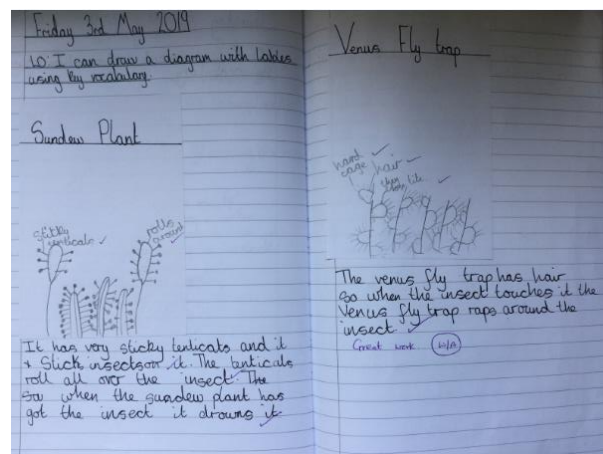 Friday 3rd May 2019
LO: I can draw a diagram with lables
using key vocabulary.
Sundew Plant
sticky
tenticals
rolls
around
It has very sticky tenticals and it
Stick insects on it. The tenticals
roll all over the insect. The
so when the sundew plant has
got the insect it drowns it
Venus Fly trap
hand
cage
hair
The venus fly trap has hair
so when the insect touches it the
Venus fly trap raps around the
insect.
Great work